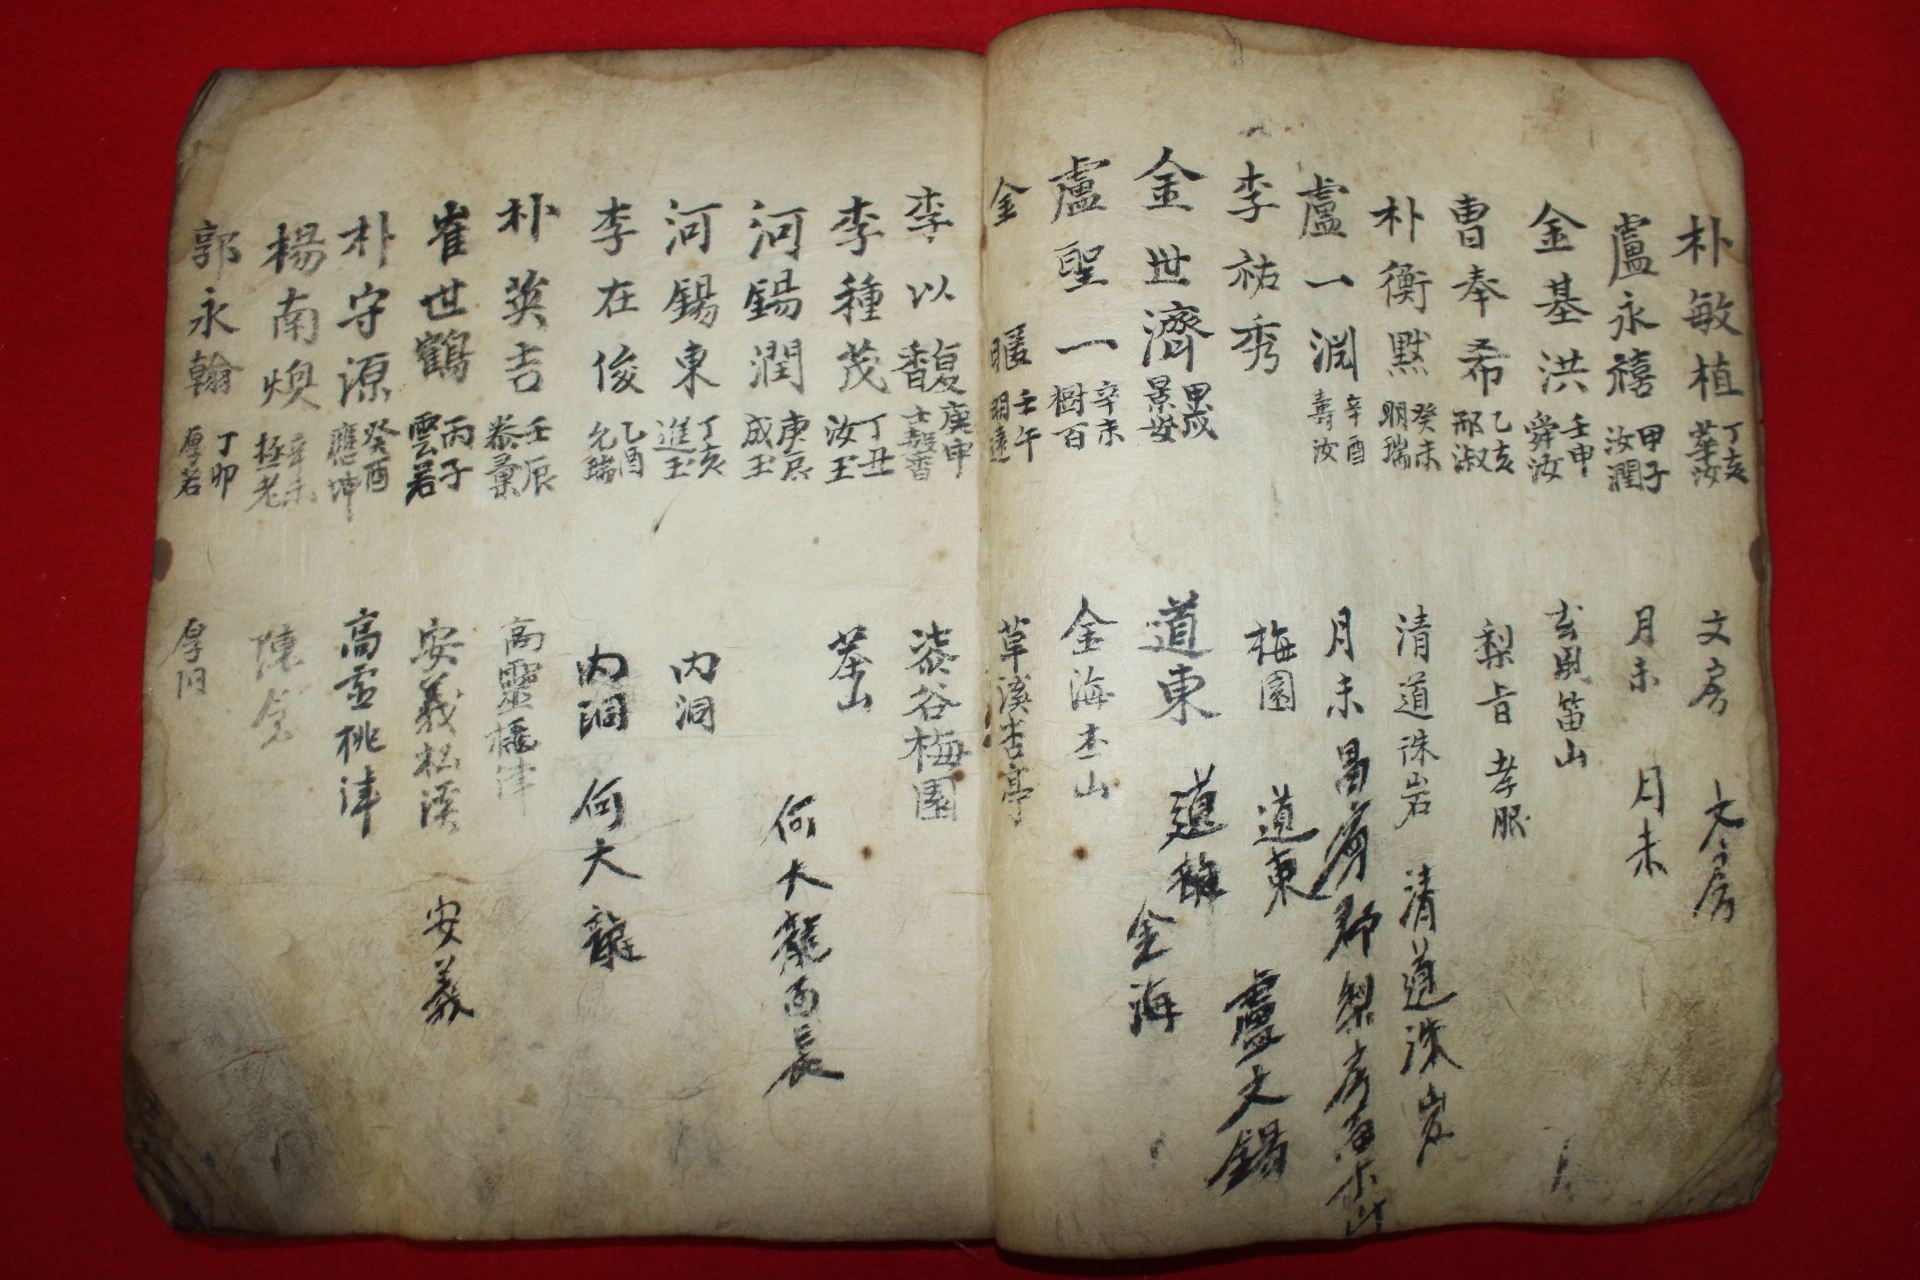 朴敏植 丁亥 華汝 文房 文房
盧永禧 甲子 汝潤 月末 月末
金基洪 壬申 舜汝 玄風笛山
曺奉希 乙亥 邢淑 梨旨 孝服
朴衡黙 癸未 明瑞 清道珠岩 清道珠岩
盧一淵 辛酉 壽汝 月末
李祐秀 梅園 道東 盧大錫
金世濟 甲戌 景安 道東 道
盧聖一 辛未 樹百 金海 山 金海
金暱 壬午 明遠 草溪杏亭
李以馥 庚申 士馨 漆谷梅園
李種茂 丁丑 汝玉 茶山
河錫潤 庚辰 成玉 何大龍 面長
河錫東 丁亥 進玉 内洞
李在俊 乙酉 允瑞 内洞 何大龍
朴英吉 壬辰 泰彙 高靈橋津
崔世鶴 丙子 雲若 安義松溪 安義
朴守源 癸酉 應坤 高靈桃津
楊南煥 辛未 極老 陳
郭永翰 丁卯 厚若 厚